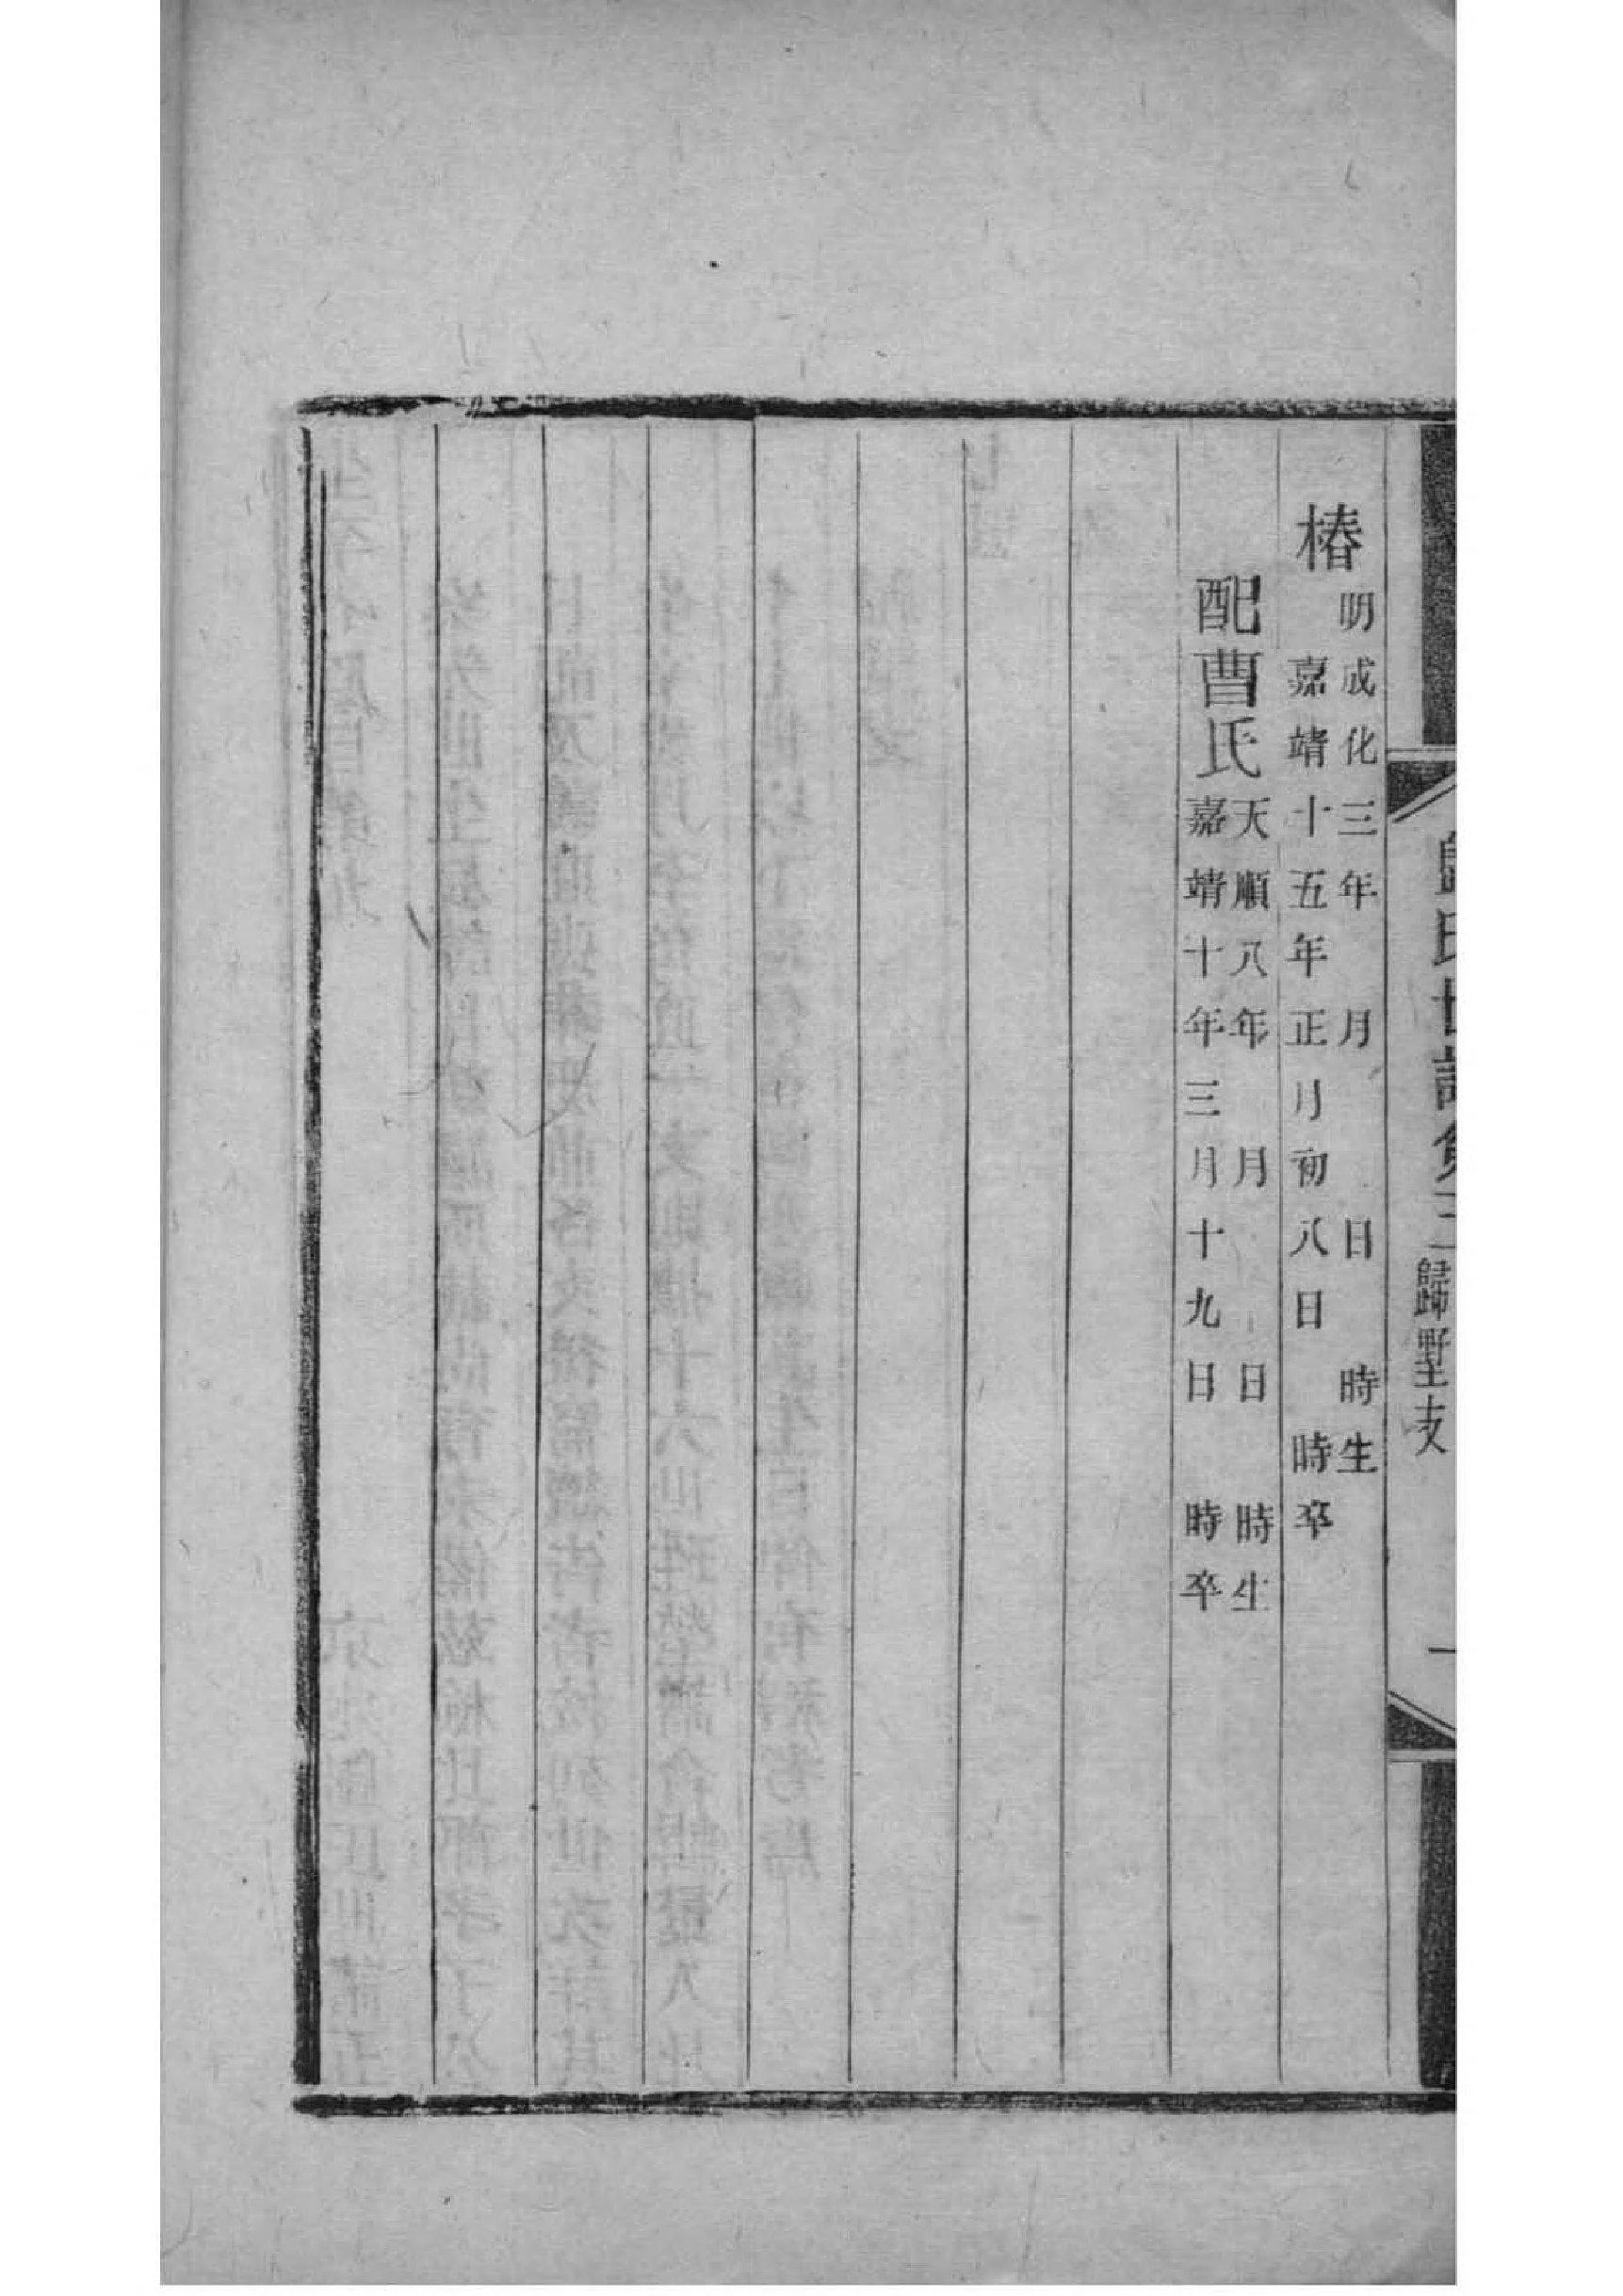 歸氏世譜卷三 歸墅支 一
椿 明成化三年 月 日 時生
嘉靖十五年正月初八日 時卒
配曹氏 天順八年 月 日 時生
嘉靖十年三月十九日 時卒